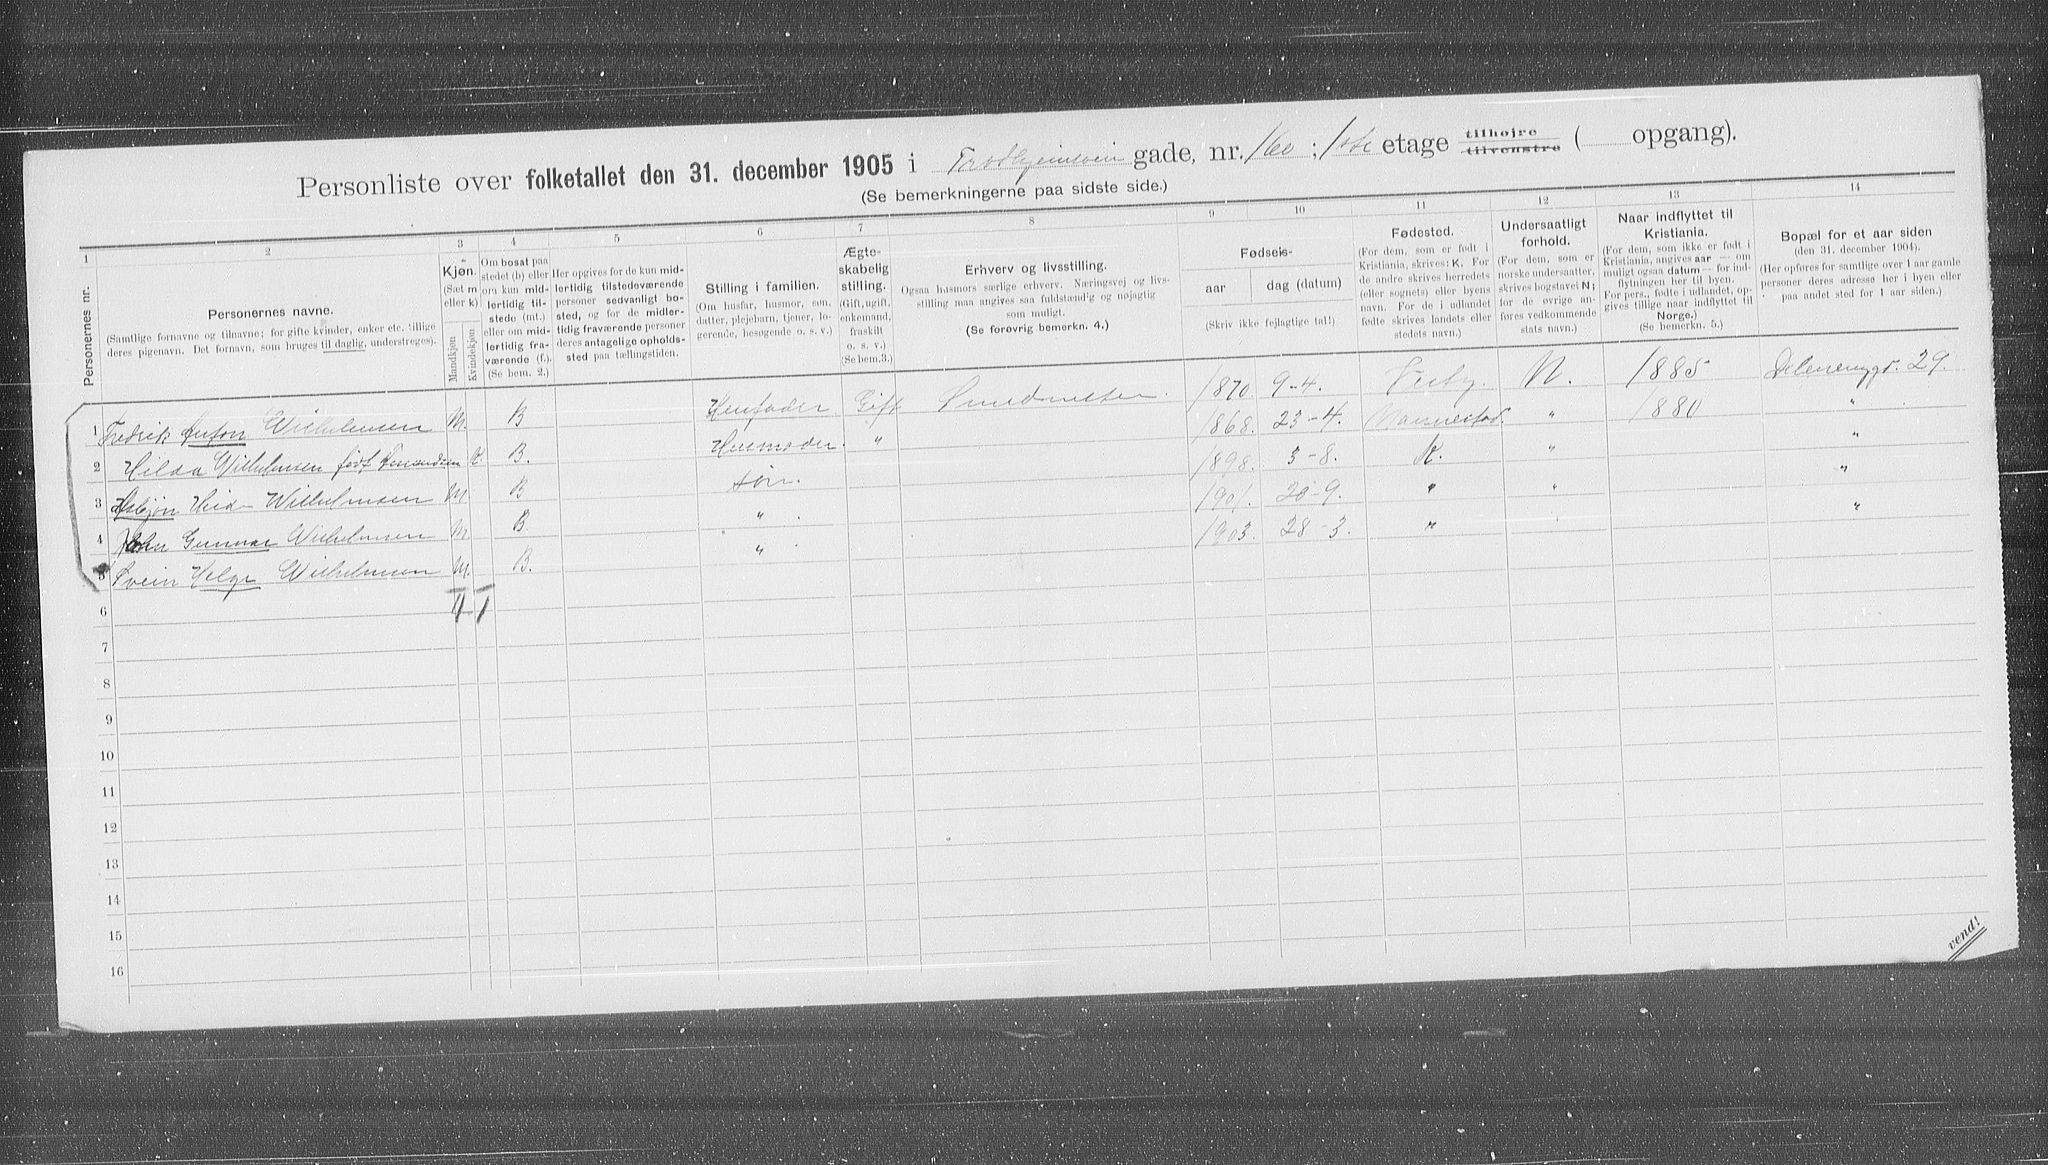 Personliste over folketallet den 31. december 1905 i gade, nr. ; 1ste etage tilhøjre tilvenstre ( opgang).
(Se bemerkningerne paa sidste side.)
1 2 3 4 5 6 7 8 9 10 11 12 13 14
Personernes nr.
Personernes navne.
(Samtlige fornavne og tilnavne; for gifte kvinder, enker etc. tillige
deres pigenavn. Det fornavn, som bruges til daglig, understreges).
Kjøn.
(Sæt m
eller k)
Mandkjøn
Kvindekjøn
Om bosat paa
stedet (b) eller
om kun mid-
lertidig til-
stede (mt.)
eller om mid-
lertidig fra-
værende (f.)
(Se bem. 2.)
Her opgives for de kun mid-
lertidig tilstedeværende
personer sedvanligt bo-
sted, og for de midler-
tidig fraværende personer
deres antagelige opholds-
sted paa tællingstiden.
Stilling i familien.
(Om husfar, husmor, søn,
datter, plejebarn, tjener, lo-
gerende, besøgende o. s. v.)
Ægte-
skabelig
stilling.
(Gift, ugift,
enkemand,
fraskilt
o. s. v.)
(Se bem.3.)
Erhverv og livsstilling.
Ogsaa husmors særlige erhverv. Næringsvej og livs-
stilling maa angives saa fuldstændig og nøjagtig
som muligt.
(Se forøvrig bemerkn. 4.)
Fødsels-
aar dag (datum)
(Skriv ikke fejlagtige tal!)
Fødested.
(For dem, som er født i
Kristiania, skrives: K. For
de andre skrives herredets
(eller sognets) eller byens
navn. For de i udlandet
fødte skrives landets eller
stedets navn.)
Undersaatligt
forhold.
(For dem, som er
norske undersaatter,
skrives bogstavet N;
for de øvrige an-
føres vedkommende
stats navn.)
Naar indflyttet til
Kristiania.
(For dem, som ikke er født i
Kristiania, angives aar — om
muligt ogsaa datum — for ind-
flytningen her til byen.
For pers., født i udlandet, op-
gives tillige naar indflyttet til
Norge.)
(Se bemerkn. 5.)
Bopæl for et aar siden
(den 31. december 1904).
(Her opføres for samtlige over 1 aar gamle
personer deres adresse her i byen eller
paa andet sted for 1 aar siden.)
1 Fredrik Anton Wilhelmsen M. B Husfader Gift 1870 9-4. N. 1885 29.
2 Hilda Wilhelmsen født K B. Husmoder. " 1868. 23-4. " 1880 "
3 Wilhelmsen M B søn. 1898. 3-8. K. " "
4 John Gunnar Wilhelmsen M B " 1901. 20-9. " " "
5 Svein Helge Wilhelmsen M. B. " 1903. 28-3. " " "
6 4 1
7
8
9
10
11
12
13
14
15
16
vend!